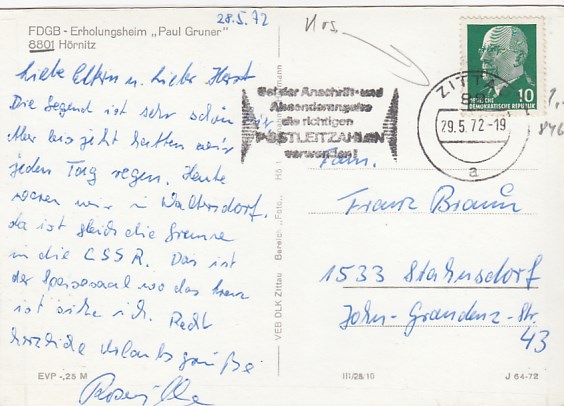 28.5.72
FDGB - Erholungsheim „Paul Gruner"
8801 Hörnitz
Liebe Eltern u. Lieber Horst
Die Gegend ist sehr schön
Aber bis jetzt hatten wir
jeden Tag regen. Heute
waren wir in Waltersdorf.
da ist gleich die Grenze
in die CSSR. Das ist
der Speisesaal wo das kreuz
ist sitze ich. Recht
herzliche Urlaubsgrüße
EVP -,25 M
VEB DLK Zittau
Bei der Anschrift- und
Absenderangabe
die richtigen
POSTLEITZAHLEN
verwenden!
ZITTAU
29.5.72-19
a
10
DEUTSCHE
DEMOKRATISCHE REPUBLIK
Fam.
Franz Braun
1533 Stahnsdorf
John-Graudenz-Str.
43
III/26/10
J 64-72